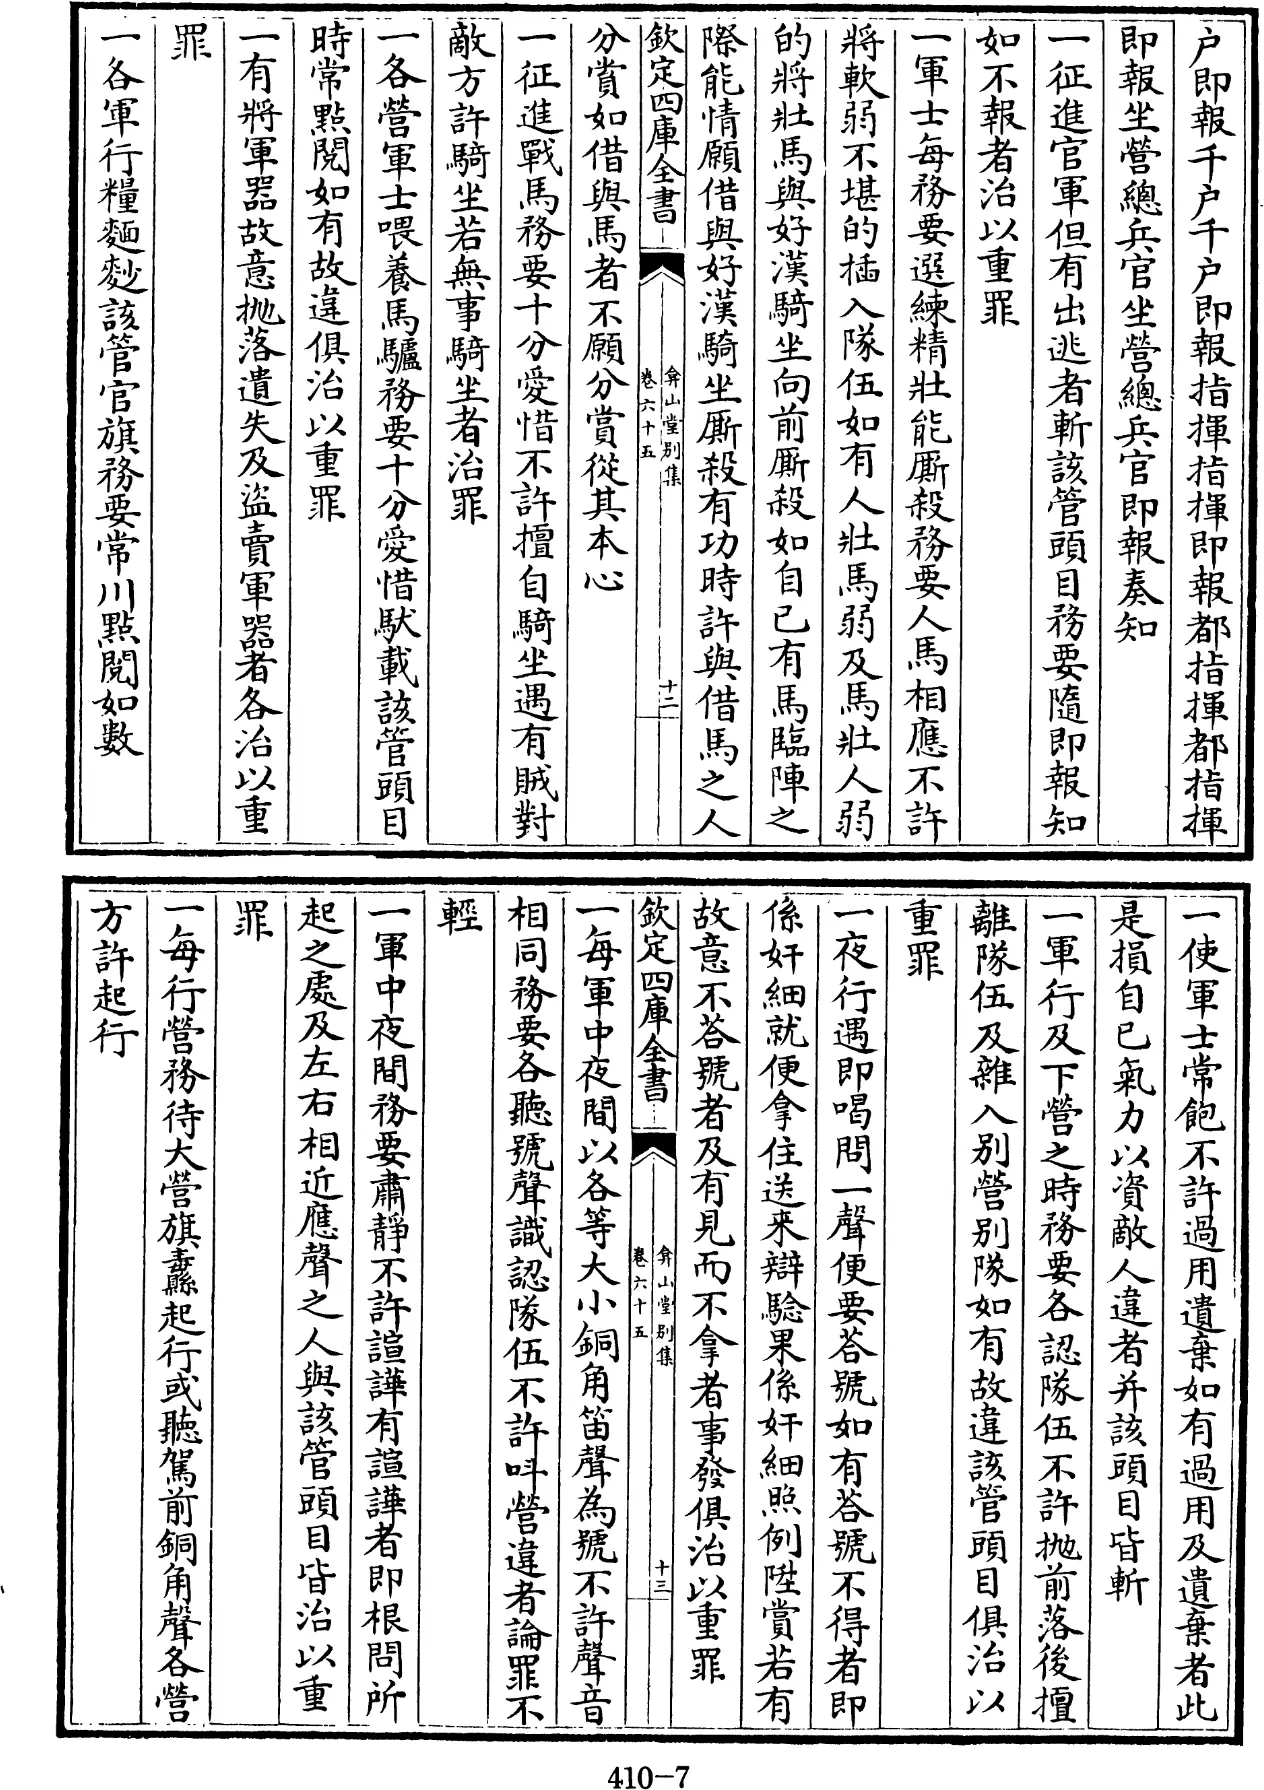 户即報千户千户即報指揮指揮即報都指揮都指揮
即報坐營總兵官坐營總兵官即報奏知
一征進官軍但有出逃者斬該管頭目務要隨即報知
如不報者治以重罪
一軍士每務要選練精壯能厮殺務要人馬相應不許
將軟弱不堪的插入隊伍如有人壯馬弱及馬壯人弱
的將壯馬與好漢騎坐向前厮殺如自已有馬臨陣之
際能情願借與好漢騎坐厮殺有功時許與借馬之人
欽定四庫全書
弇山堂别集
卷六十五
十二
分賞如借與馬者不願分賞從其本心
一征進戰馬務要十分愛惜不許擅自騎坐遇有賊對
敵方許騎坐若無事騎坐者治罪
一各營軍士喂養馬驢務要十分愛惜馱載該管頭目
時常點閱如有故違俱治以重罪
一有將軍器故意抛落遺失及盜賣軍器者各治以重
罪
一各軍行糧麵麨該管官旗務要常川點閱如數
一使軍士常飽不許過用遺棄如有過用及遺棄者此
是損自已氣力以資敵人違者并該頭目皆斬
一軍行及下營之時務要各認隊伍不許抛前落後擅
離隊伍及雜入别營别隊如有故違該管頭目俱治以
重罪
一夜行遇即喝問一聲便要荅號如有荅號不得者即
係奸細就便拿住送來辯驗果係奸細照例陞賞若有
故意不荅號者及有見而不拿者事發俱治以重罪
欽定四庫全書
弇山堂别集
卷六十五
十三
一每軍中夜間以各等大小銅角笛聲為號不許聲音
相同務要各聽號聲識認隊伍不許呌營違者論罪不
輕
一軍中夜間務要肅靜不許諠譁有諠譁者即根問所
起之處及左右相近應聲之人與該管頭目皆治以重
罪
一每行營務待大營旗纛起行或聽駕前銅角聲各營
方許起行
410-7